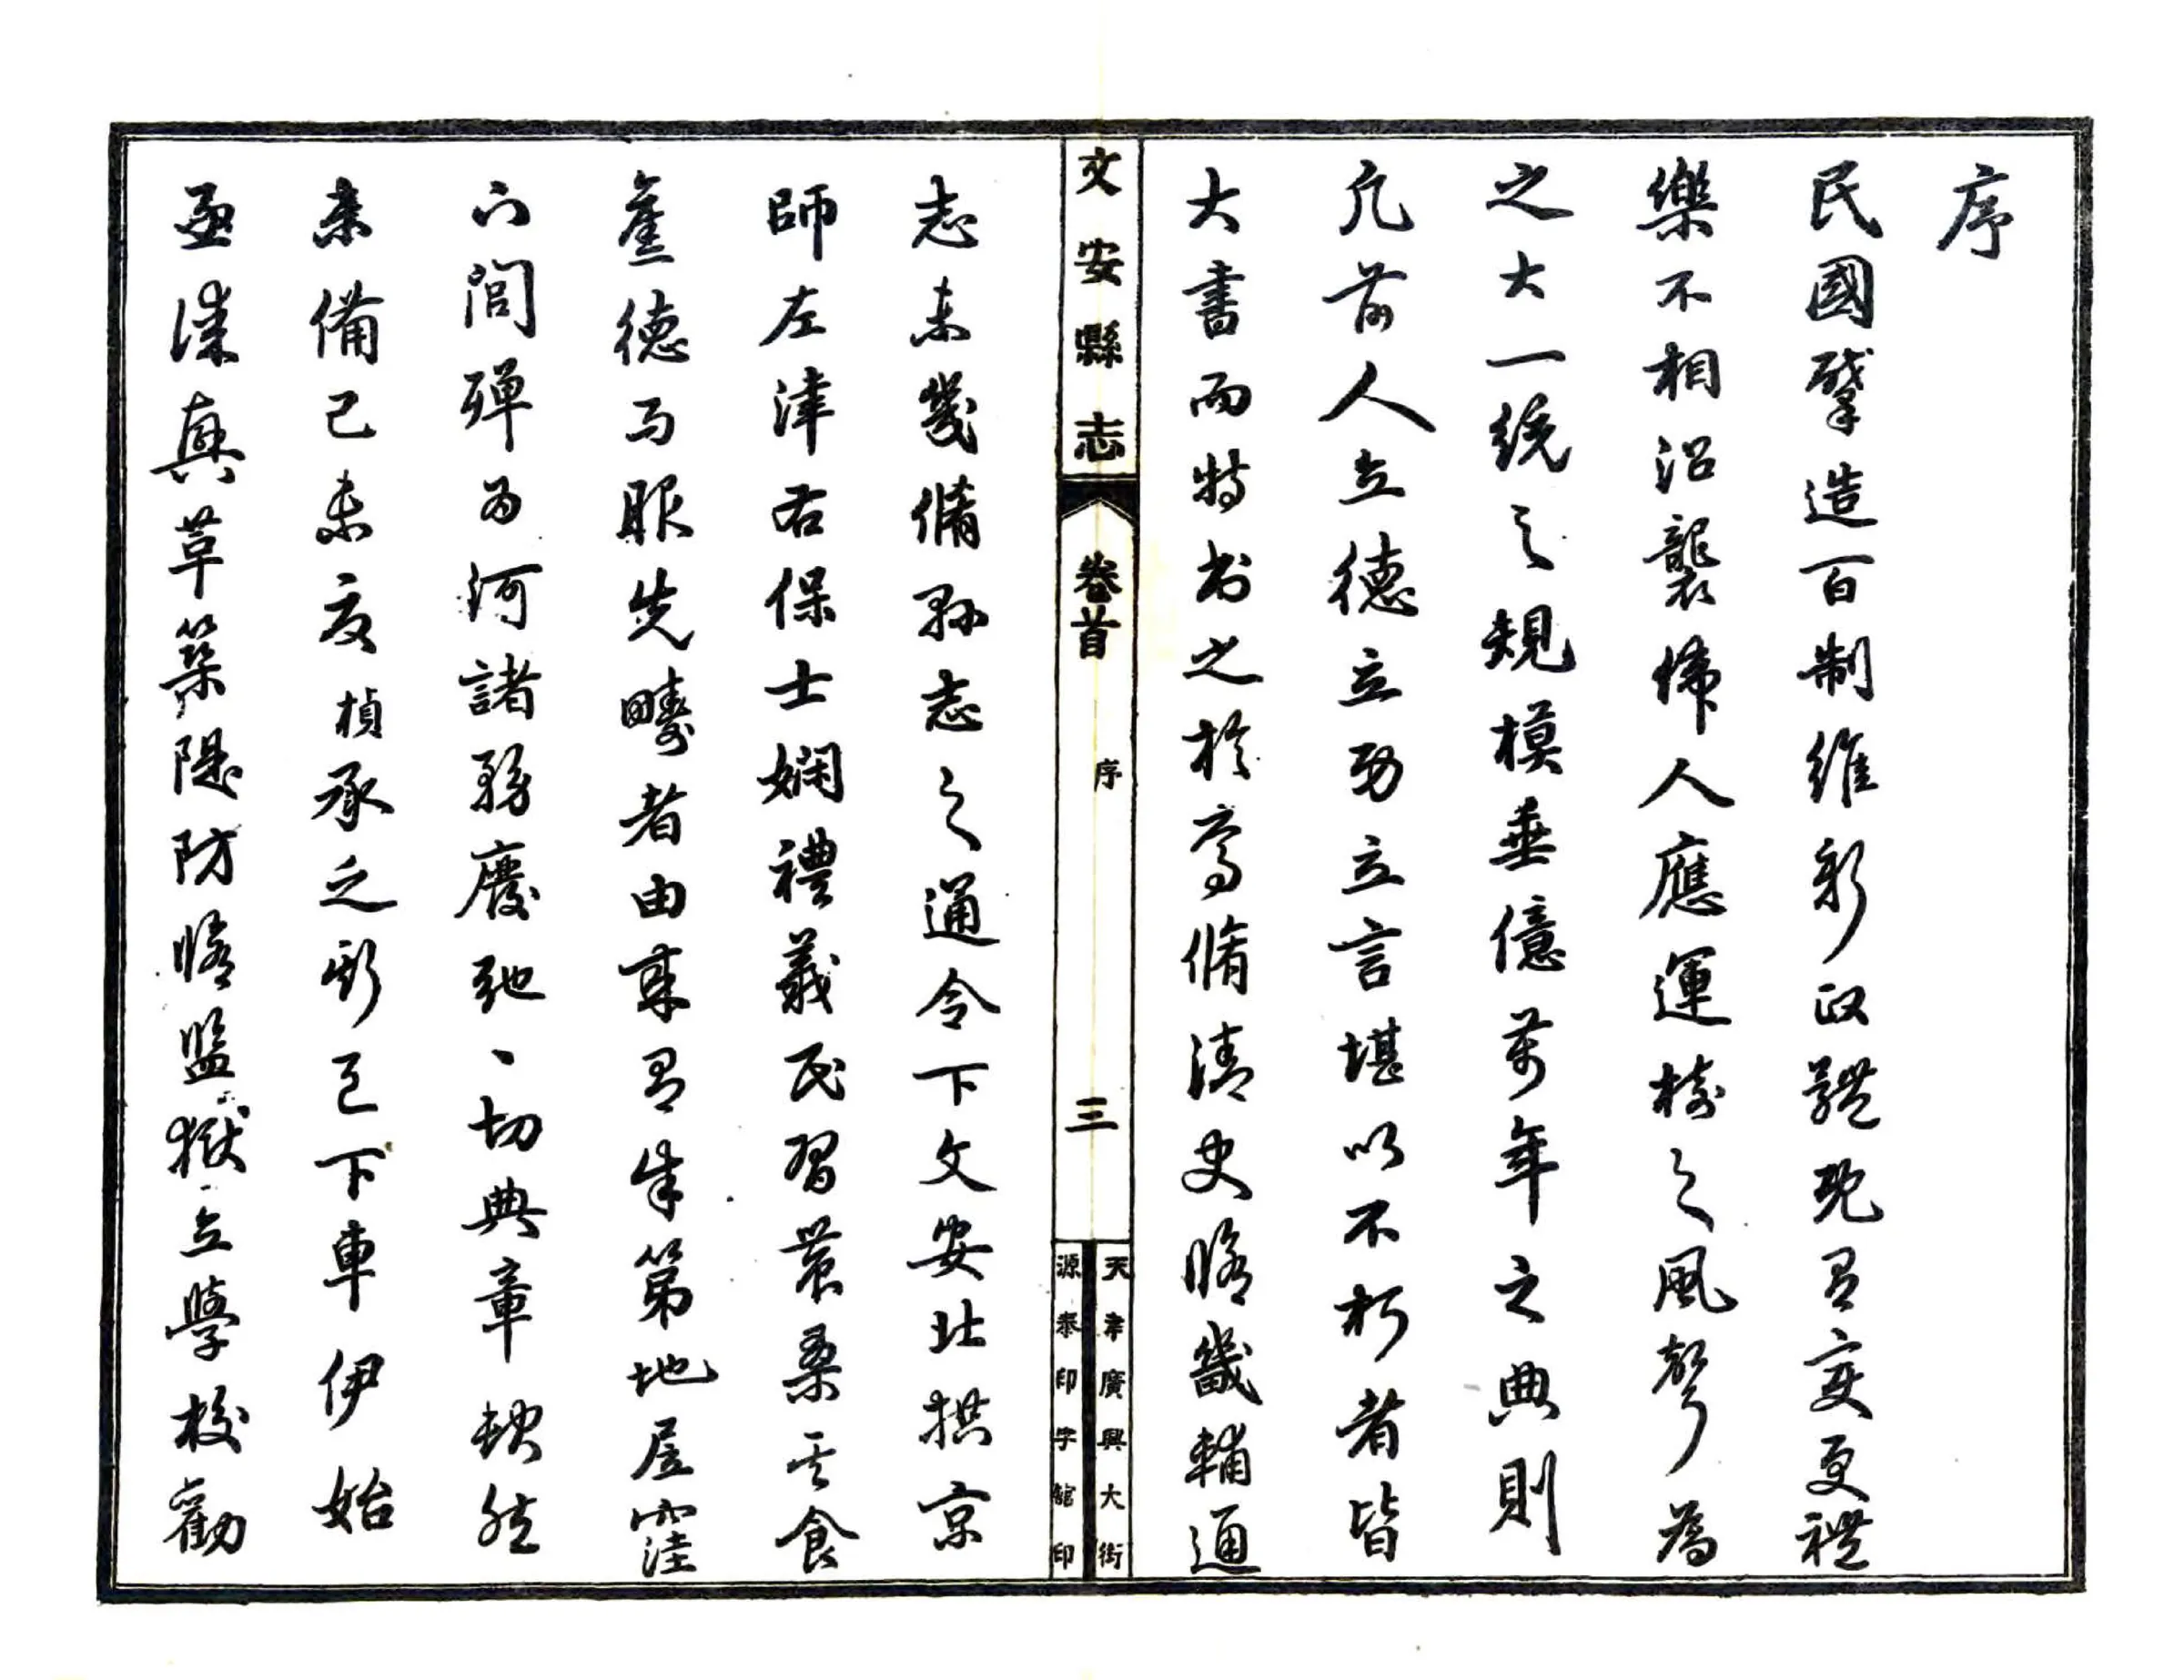 序
民國肇造百制維新政體既有變更禮
樂不相沿襲偉人應運樹之風聲為
之大一統之規模垂億萬年之典則
凡前人立德立功立言堪以不朽者皆
大書而特書之於焉脩清史脩畿輔通
文安縣志
卷首
序
三
天津廣興大街
源泰印字館印
志未幾脩縣志之通令下文安北拱京
師左津右保士嫻禮義民習農桑其食
舊德而服先疇者由來有年第地居窪
下閭殫為河諸務廢弛一切典章缺然
未備己未夏楨承乏斯邑下車伊始
亟漾與草築隄防脩監獄立學校勸